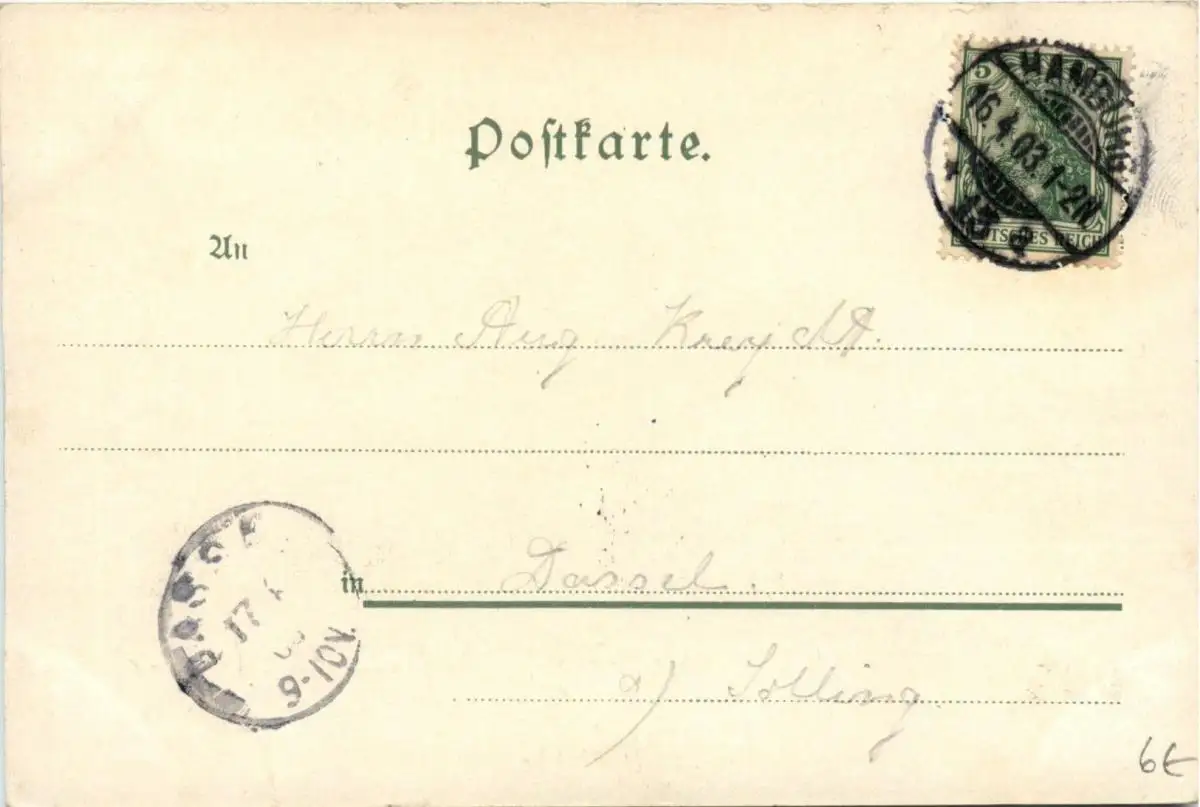 Postkarte.
5
HAMBURG
16.4.03. 1-2N
* 13 a
DEUTSCHES REICH
An
Herrn Aug
in Dassel.
a) Solling
DASSEL
17
9-10V.
6€